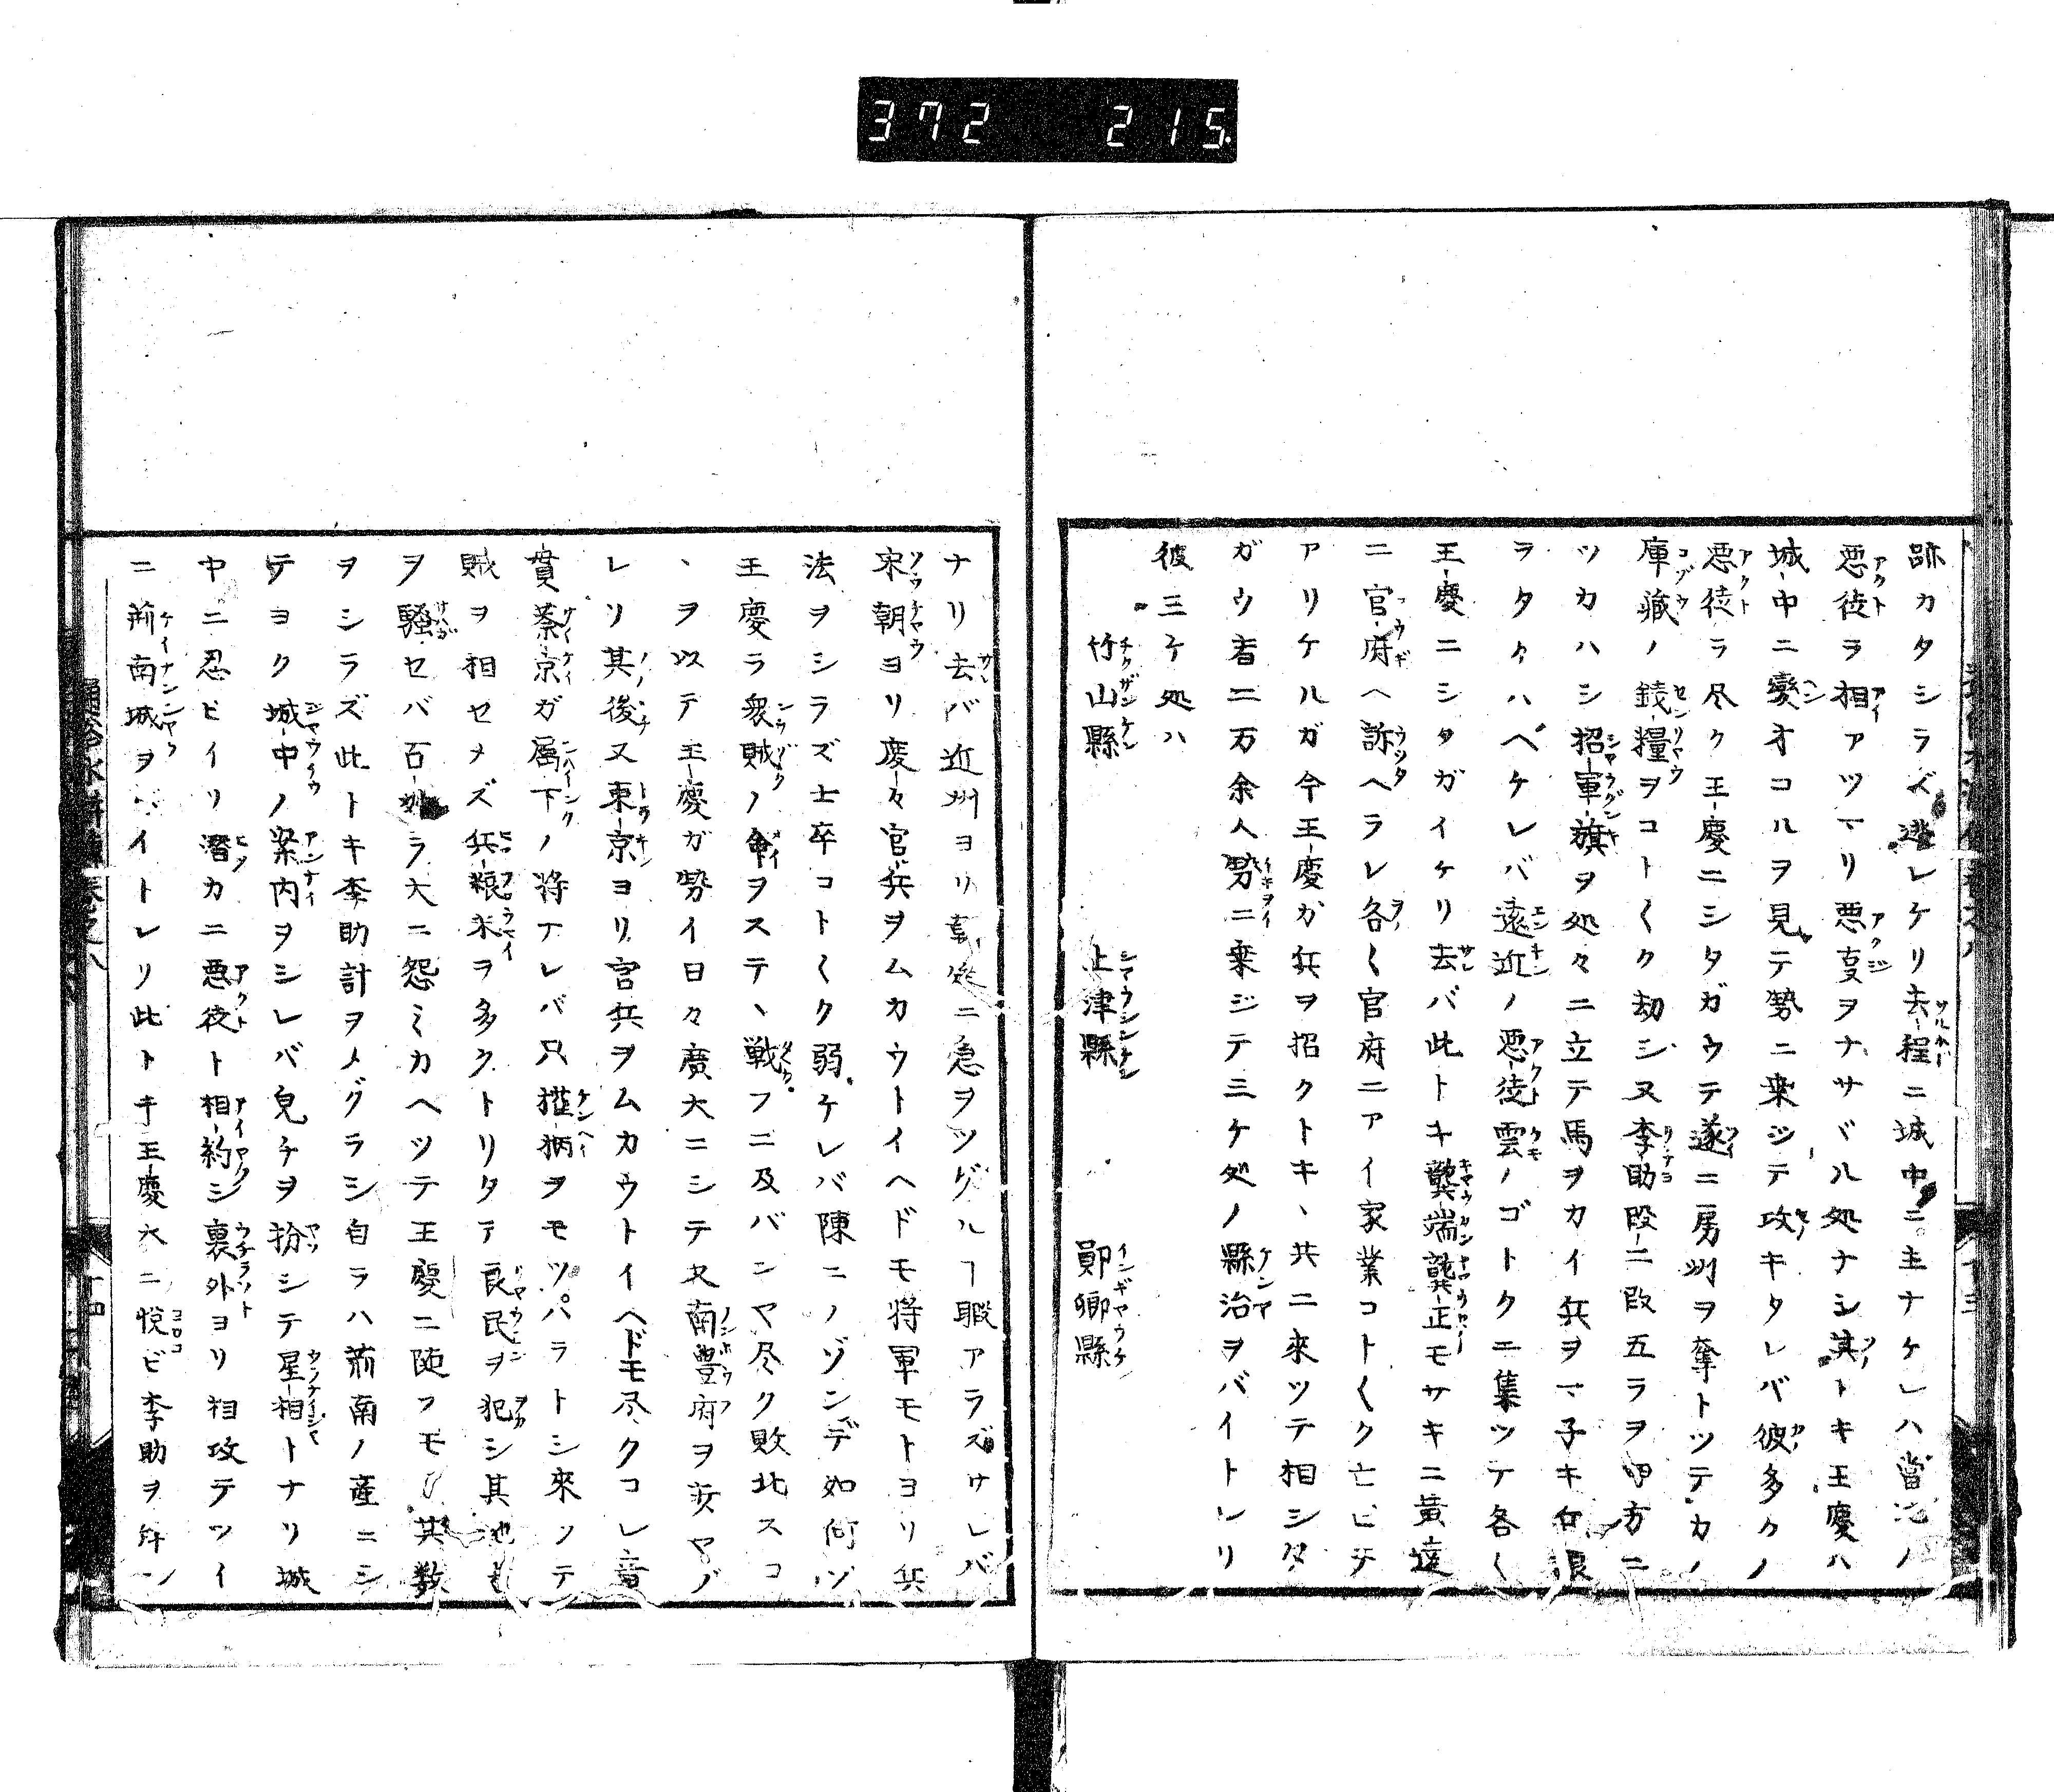 372 215
跡カタシラズ逃レケリ去程ニ城中ニ主ナケレハ當処ノ
悪徒ラ相アツマリ悪事ヲナサバル処ナシ其トキ王慶ハ
城中ニ變オコルヲ見テ勢ニ乗ジテ攻キタレバ彼多クノ
悪徒ラ尽ク王慶ニシタガウテ遂ニ房州ヲ奪トツテカノ
庫藏ノ錢糧ヲコト〱ク劫シ又李助段二段五ラヲ四方ニ
ツカハシ招軍旗ヲ処々ニ立テ馬ヲカイ兵ヲマ子キ糧
ヲタクハヘケレバ遠近ノ悪徒雲ノゴトクニ集ツテ各〱
王慶ニシタガイケリ去バ此トキ龔端龔正モサキニ黃達
ニ官府ヘ訴ヘラレ各〱官府ニアイ家業コト〱ク亡ビテ
アリケルガ今王慶ガ兵ヲ招クトキヽ共ニ來ツテ相シタ
ガウ者二万余人勢ニ乗ジテ三ケ処ノ縣治ヲバイトレリ
彼三ケ処ハ
竹山縣 上津縣 鄖鄉縣
ナリ去バ近州ヨリ朝廷ニ急ヲツグルヿ暇アラズサレバ
宋朝ヨリ度々官兵ヲムカウトイヘドモ将軍モトヨリ兵
法ヲシラズ士卒コト〱ク弱ケレバ陳ニノゾンデ如何ゾ
王慶ラ衆賊ノ命ヲステヽ戦フニ及バンヤ尽ク敗北スコ
ヽヲ以テ王慶ガ勢イ日々廣大ニシテ又南豊府ヲ攻ヤブ
レリ其後又東京ヨリ官兵ヲムカウトイヘドモ尽クコレ童
貫蔡京ガ屬下ノ将ナレバ只權柄ヲモツパラトシ來ツテ
賊ヲ相セメズ兵粮米ヲ多クトリタテ良民ヲ犯シ其池
ヲ騒セバ百姓ラ大ニ怨ミカヘツテ王慶ニ随フモノ其数
ヲシラズ此トキ李助計ヲメグラシ自ラハ荊南ノ産ニシ
テヨク城中ノ案内ヲシレバ皃チヲ扮シテ星相トナリ城
中ニ忍ビイリ潜カニ悪徒ト相約シ裏外ヨリ相攻テツイ
ニ荊南城ヲバイトレリ此トキ王慶大ニ悦ビ李助ヲ拜シ